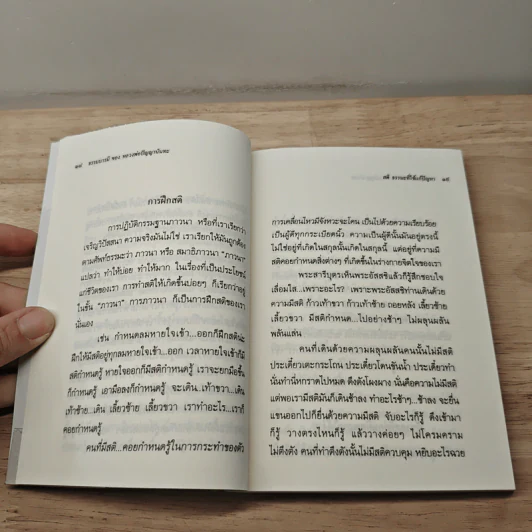 ๑๘ ธรรมบารมี ของ หลวงพ่อปัญญานันทะ
การฝึกสติ
การปฏิบัติกรรมฐานภาวนา หรือที่เราเรียกว่า
เจริญวิปัสสนา ความจริงมันไม่ใช่ เราเรียกให้มันถูกต้อง
ตามศัพท์ธรรมะว่า ภาวนา หรือ สมาธิภาวนา "ภาวนา"
แปลว่า ทำให้บ่อย ทำให้มาก ในเรื่องที่เป็นประโยชน์
แก่ชีวิตของเรา การทำสติให้เกิดขึ้นบ่อยๆ ก็เรียกว่าอยู่
ในชั้น "ภาวนา" การภาวนา ก็เป็นการฝึกสติของเรา
นั่นเอง
เช่น กำหนดลมหายใจเข้า...ออกก็ฝึกสตินะ
ฝึกให้มีสติอยู่ทุกลมหายใจเข้า...ออก เวลาหายใจเข้าก็มี
สติกำหนดรู้ หายใจออกก็มีสติกำหนดรู้ เราจะยกมือขึ้น
ก็กำหนดรู้ เอามือลงก็กำหนดรู้ จะเดิน เท้าขวา...เดิน
เท้าซ้าย...เดิน เลี้ยวซ้าย เลี้ยวขวา เราทำอะไร...เราก็
คอยกำหนดรู้
คนที่มีสติ...คอยกำหนดรู้ในการกระทำของตัว
สติ ธรรมะที่ใช้แก้ปัญหา ๑๙
การเคลื่อนไหวมีจังหวะจะโคน เป็นไปด้วยความเรียบร้อย
เป็นผู้ดีทุกกระเบียดนิ้ว ความเป็นผู้ดีนั้นมันอยู่ตรงนี้
ไม่ใช่อยู่ที่เกิดในสกุลนั้นเกิดในสกุลนี้ แต่อยู่ที่ความมี
สติคอยกำหนดสิ่งต่างๆ ที่เกิดขึ้นในร่างกายจิตใจของเรา
พระสารีบุตรเห็นพระอัสสชิแล้วก็รู้สึกชอบใจ
เลื่อมใส ..เพราะอะไร? เพราะพระอัสสชิท่านเดินด้วย
ความมีสติ ก้าวเท้าขวา ก้าวเท้าซ้าย ถอยหลัง เลี้ยวซ้าย
เลี้ยวขวา มีสติกำหนด...ไปอย่างช้าๆ ไม่ผลุนผลัน
พลันแล่น
คนที่เดินด้วยความผลุนผลันคนนั้นไม่มีสติ
ประเดี๋ยวเตะกระโถน ประเดี๋ยวโดนขันน้ำ ประเดี๋ยวทำ
นั่นทำนี่หกราดไปหมด ตึงตังโผงผาง นั่นคือความไม่มีสติ
แต่พอเรามีสติมันก็เดินช้าลง ทำอะไรช้าๆ...ช้าลง จะยื่น
แขนออกไปก็ยื่นด้วยความมีสติ จับอะไรก็รู้ ดึงเข้ามา
ก็รู้ วางตรงไหนก็รู้ แล้ววางค่อยๆ ไม่โครมคราม
ไม่ตึงตัง คนที่ทำตึงตังนั้นไม่มีสติควบคุม หยิบอะไรฉวย